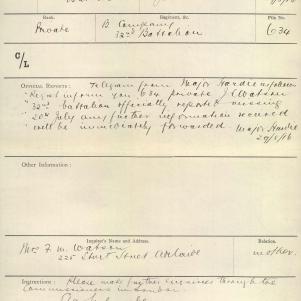 Rank. Regiment, &c. File No
Private B Company 634
32nd Battalion
C/L
OFFICIAL REPORTS: Telegram from Major Hardie as follows
"Regret inform you 634 private J Watson
"32nd battalion officially reported missing
"20th July any further information received
"will be immediately forwarded. Major Hardie
29/8/16
OTHER INFORMATION:
Inquirer's Name and Address. Relation.
Mrs F. M. Watson mother.
225 Sturt Street Adelaide
Instructions: Please make further enquiries through the
Commissioners in London